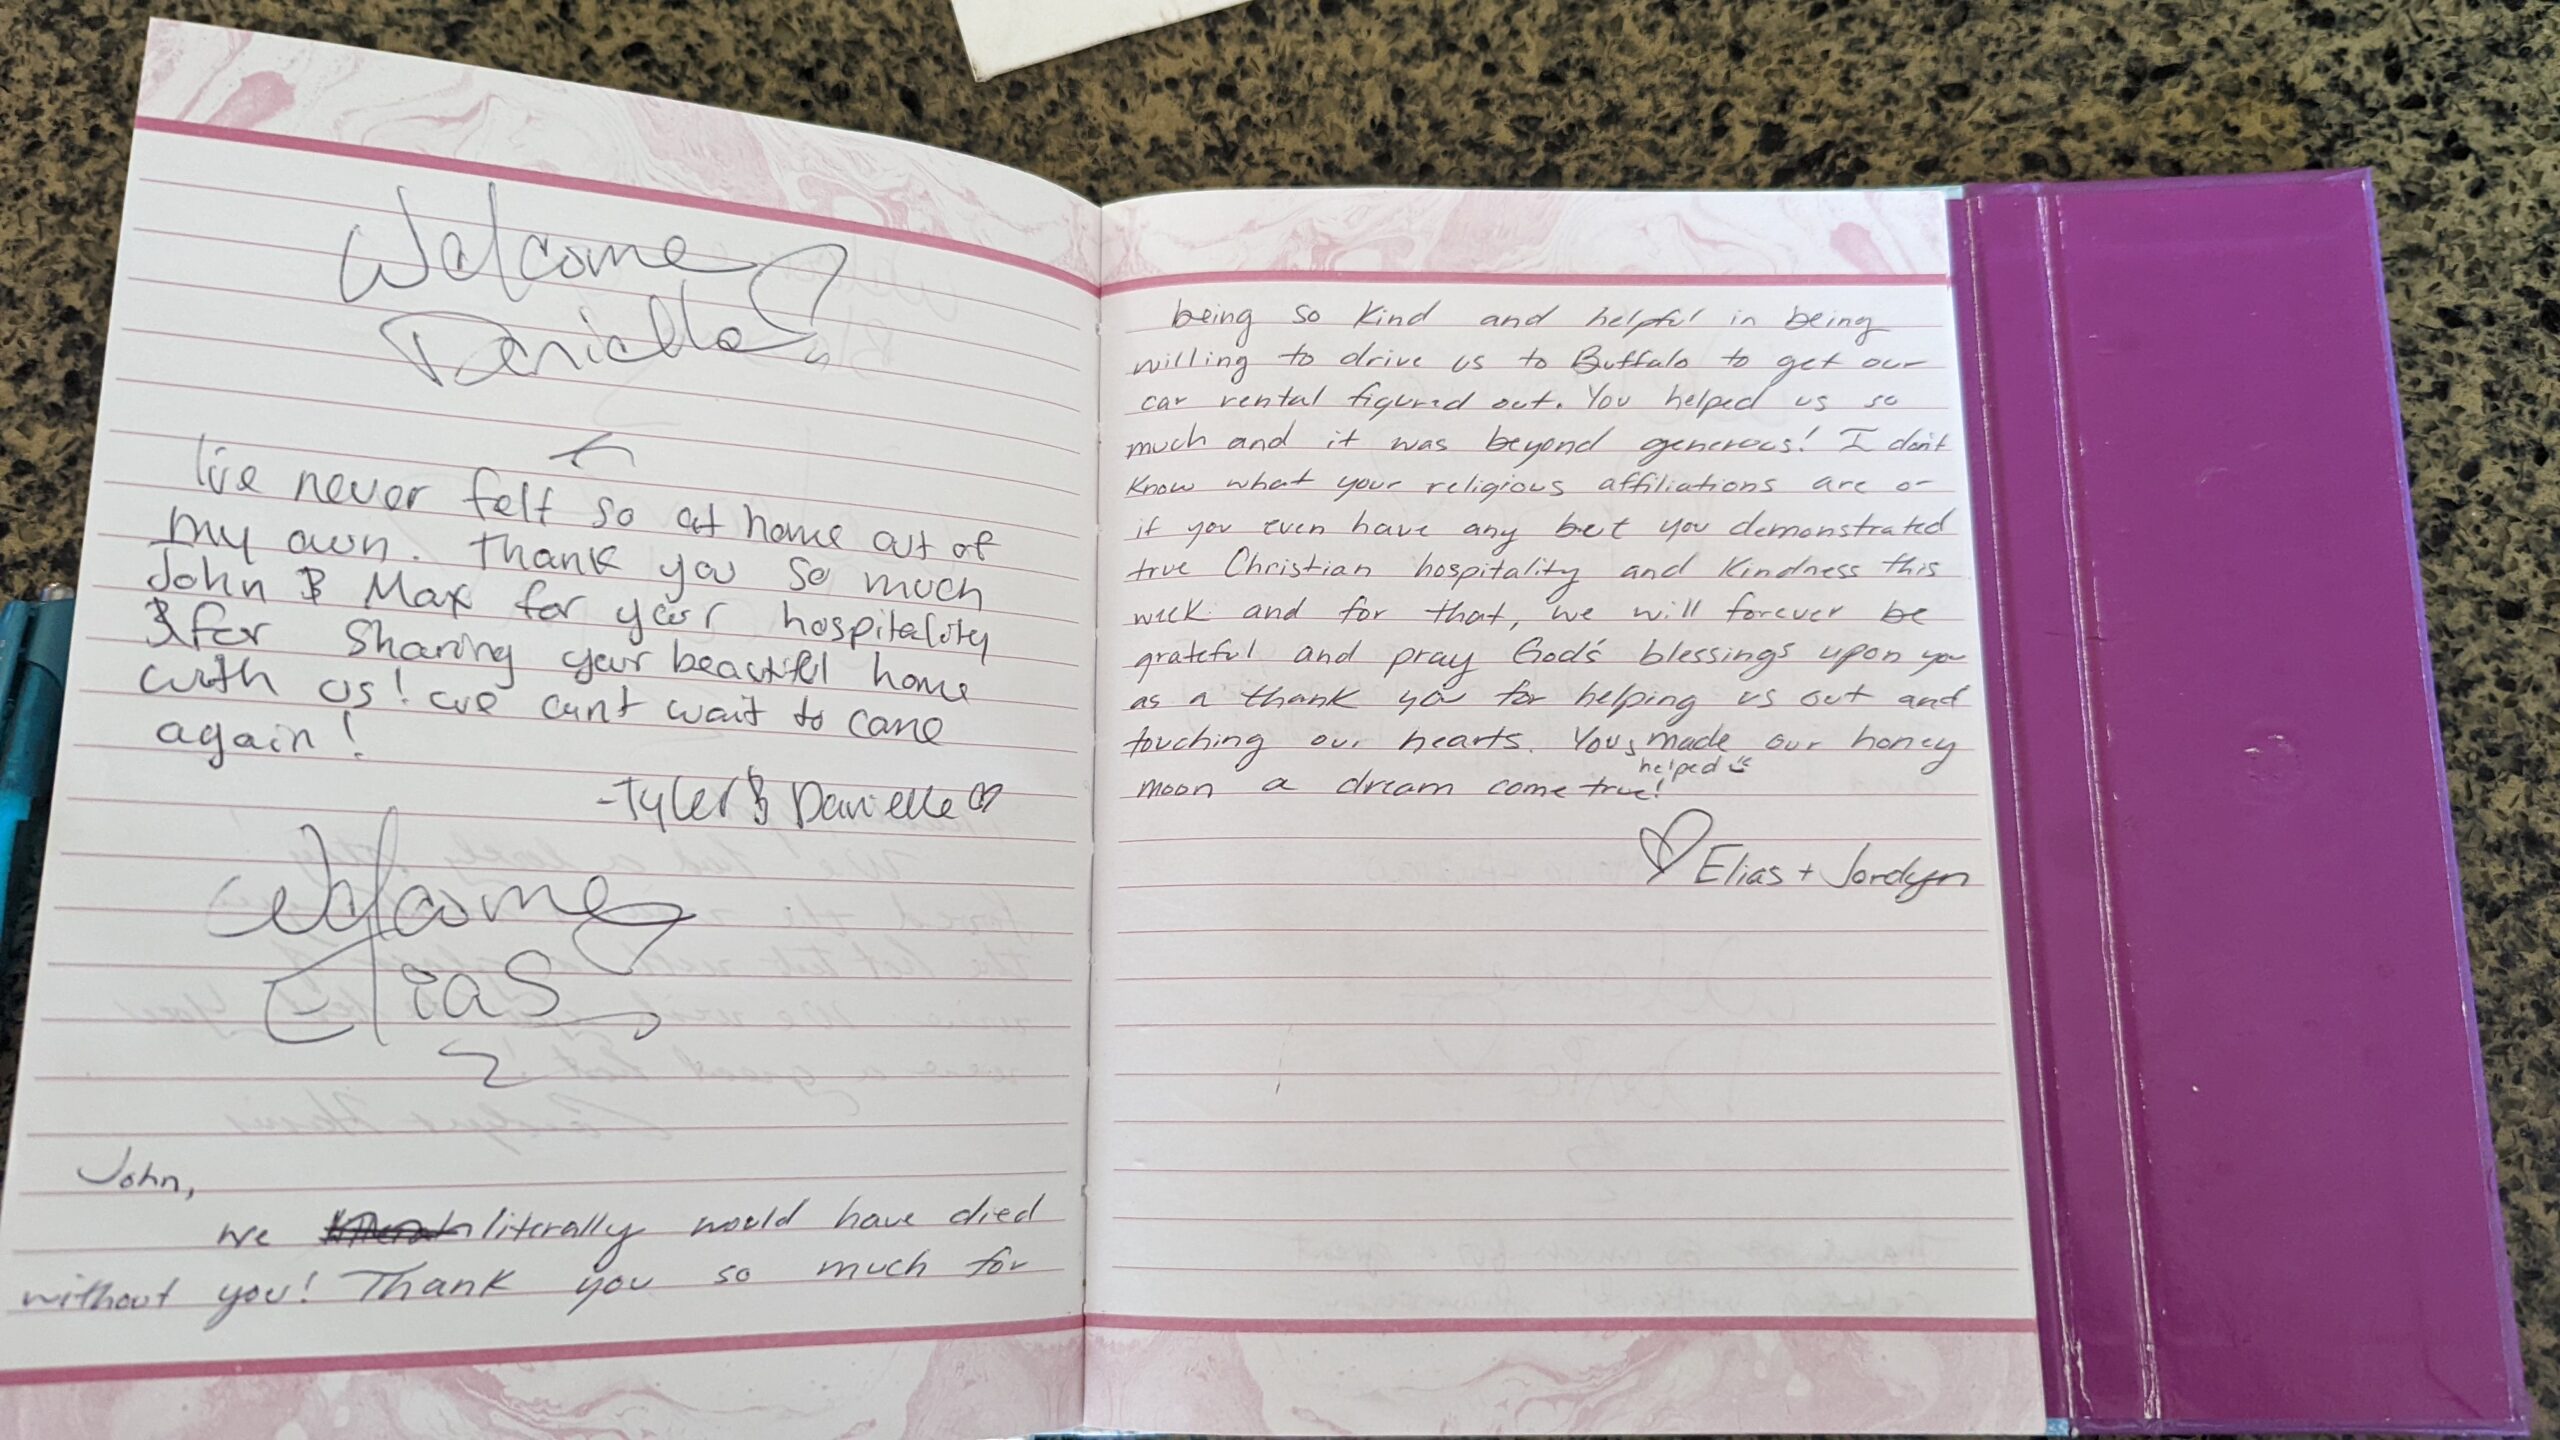 Welcome
Danielle
I've never felt so at home out of
my own. Thank you so much
John & Max for your hospitality
& for sharing your beautiful home
with us! we can't wait to come
again!
-Tyler & Danielle ♡
Welcome
Elias
John,
we literally would have died
without you! Thank you so much for
being so kind and helpful in being
willing to drive us to Buffalo to get our
car rental figured out. You helped us so
much and it was beyond generous! I don't
know what your religious affiliations are or
if you even have any but you demonstrated
true Christian hospitality and kindness this
week and for that, we will forever be
grateful and pray God's blessings upon you
as a thank you for helping us out and
touching our hearts. You made our honey
helped
moon a dream come true!
♡ Elias + Jordyn